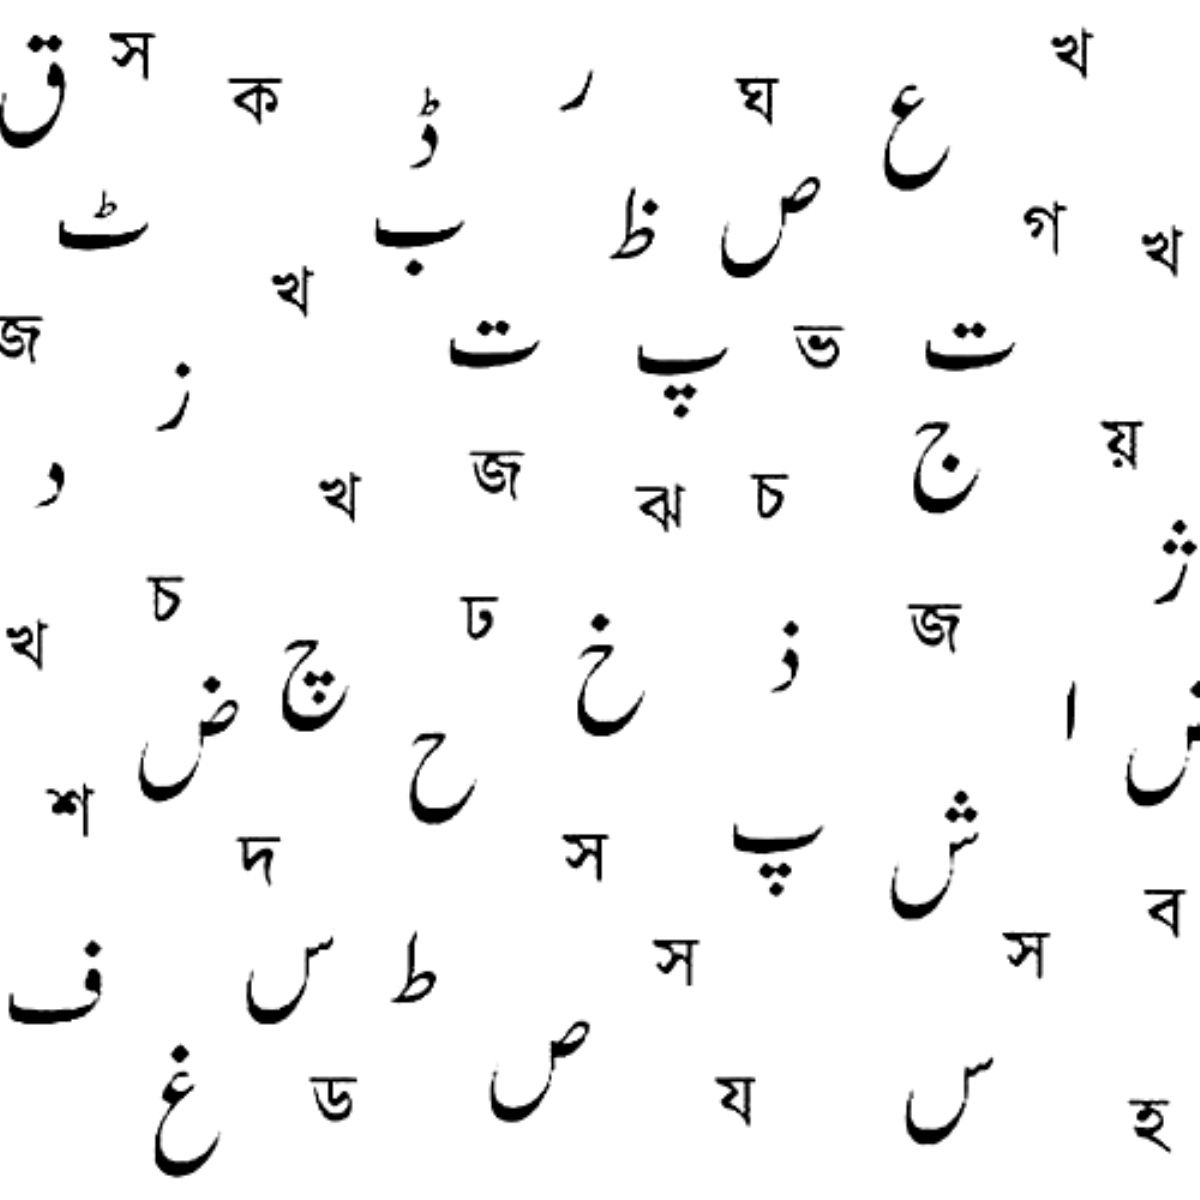 ق স ক ڈ ر ঘ ع খ
ٹ ب ظ ص গ খ
খ
জ ز ت پ ভ ت
د খ জ ঝ চ ج য় ژ
খ চ چ ঢ خ ذ জ
ض ح ا
শ দ স پ ش ব
ف س ط স স
غ ড ص য س হ